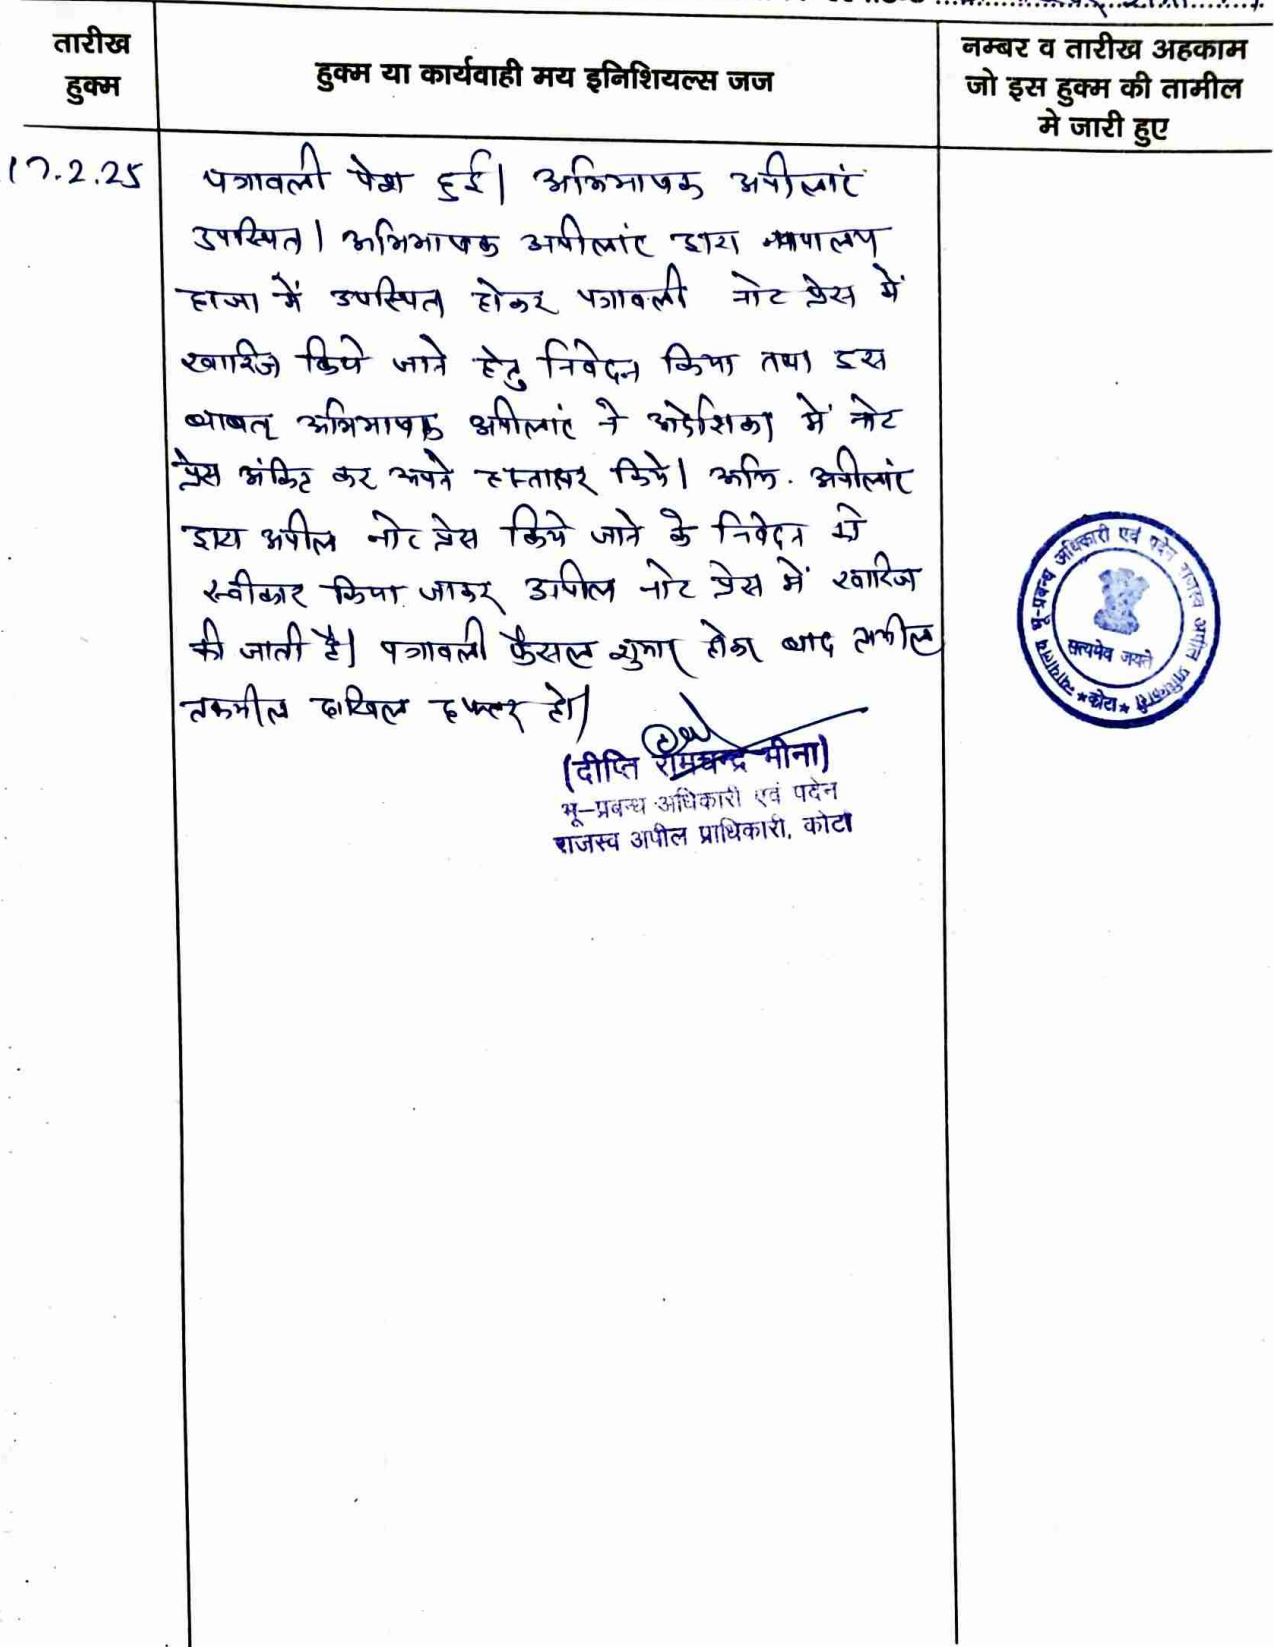 तारीख
हुक्म
हुक्म या कार्यवाही मय इनिशियल्स जज
नम्बर व तारीख अहकाम
जो इस हुक्म की तामील
मे जारी हुए
17.2.25
पत्रावली पेश हुई। अभिभाषक अपीलांट
उपस्थित। अभिभाषक अपीलांट द्वारा न्यायालय
हाजा में उपस्थित होकर पत्रावली नोट प्रेस में
खारिज किये जाने हेतु निवेदन किया तथा इस
बाबत अभिभाषक अपीलांट ने आदेशिका में नोट
प्रेस अंकित कर अपने हस्ताक्षर किये। अभि. अपीलांट
द्वारा अपील नोट प्रेस किये जाने के निवेदन को
स्वीकार किया जाकर अपील नोट प्रेस में खारिज
की जाती है। पत्रावली फैसल शुमार होकर बाद तामील
तकमील दाखिल दफ्तर हो।
(दीप्ति रामचन्द्र मीना)
भू-प्रबन्ध अधिकारी एवं पदेन
राजस्व अपील प्राधिकारी, कोटा
न्यायालय भू-प्रबन्ध अधिकारी एवं पदेन राजस्व अपील प्राधिकारी
सत्यमेव जयते
*कोटा*